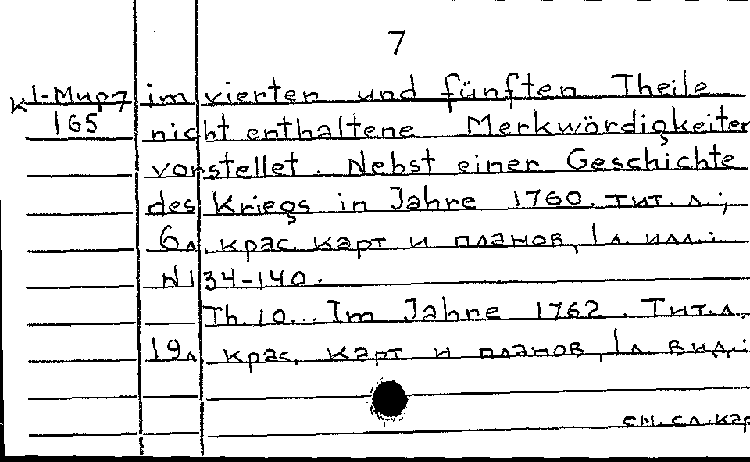 7
К 1-Мир7 im vierten und fünften Theile
165 nicht enthaltene Merkwürdigkeiten
vorstellet. Nebst einer Geschichte
des Kriegs in Jahre 1760. тит. л.;
6л. крас. карт и планов, 1л. илл.;
N134-140.
Th. 10... Im Jahre 1762. Тит.л.
19л. крас. карт и планов, 1л. вид.;
см. сл. кар